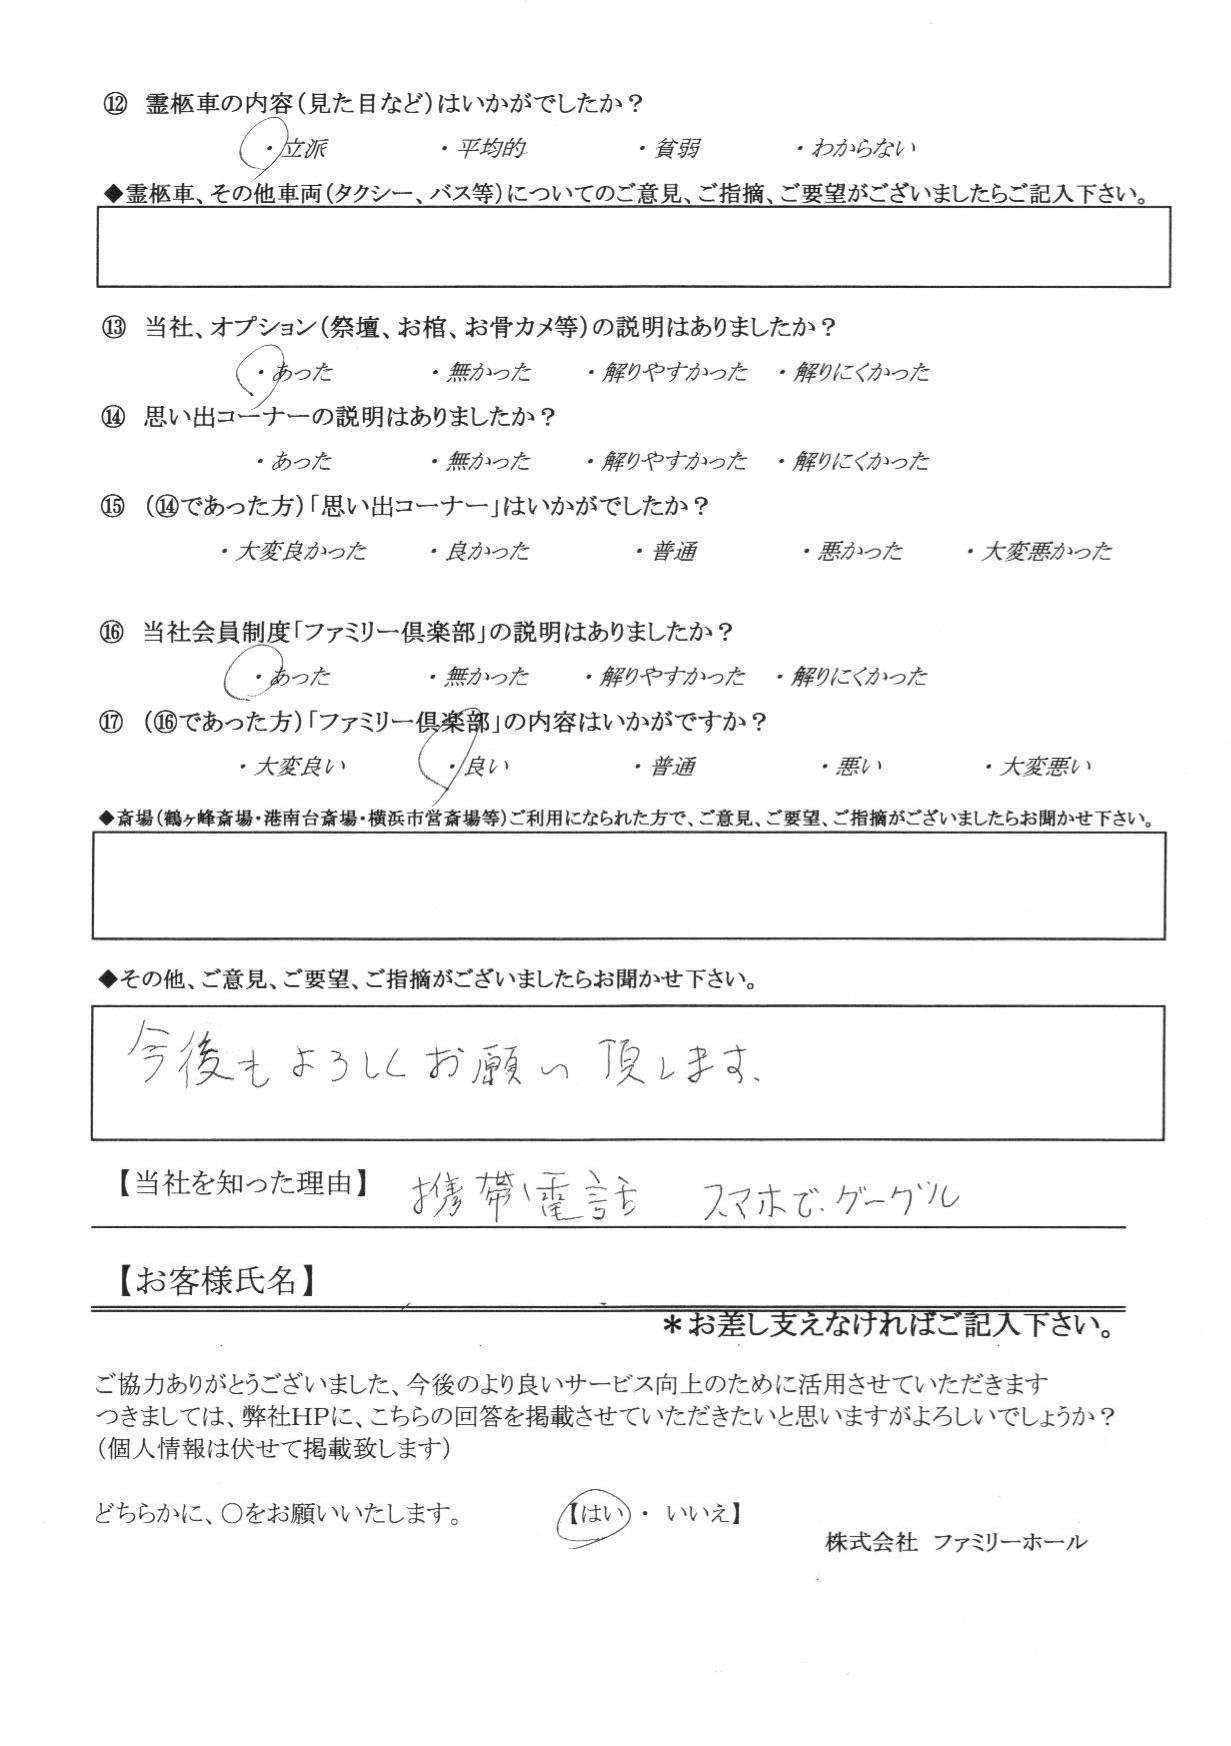 ⑫ 霊柩車の内容（見た目など）はいかがでしたか？
・立派 ・平均的 ・貧弱 ・わからない
◆霊柩車、その他車両（タクシー、バス等）についてのご意見、ご指摘、ご要望がございましたらご記入下さい。
⑬ 当社、オプション（祭壇、お棺、お骨カメ等）の説明はありましたか？
・あった ・無かった ・解りやすかった ・解りにくかった
⑭ 思い出コーナーの説明はありましたか？
・あった ・無かった ・解りやすかった ・解りにくかった
⑮ （⑭であった方）「思い出コーナー」はいかがでしたか？
・大変良かった ・良かった ・普通 ・悪かった ・大変悪かった
⑯ 当社会員制度「ファミリー倶楽部」の説明はありましたか？
・あった ・無かった ・解りやすかった ・解りにくかった
⑰ （⑯であった方）「ファミリー倶楽部」の内容はいかがですか？
・大変良い ・良い ・普通 ・悪い ・大変悪い
◆斎場（鶴ヶ峰斎場・港南台斎場・横浜市営斎場等）ご利用になられた方で、ご意見、ご要望、ご指摘がございましたらお聞かせ下さい。
◆その他、ご意見、ご要望、ご指摘がございましたらお聞かせ下さい。
今後もよろしくお願い頂します.
【当社を知った理由】 携帯電話 スマホで.グーグル
【お客様氏名】
＊お差し支えなければご記入下さい。
ご協力ありがとうございました、今後のより良いサービス向上のために活用させていただきます
つきましては、弊社HPに、こちらの回答を掲載させていただきたいと思いますがよろしいでしょうか？
（個人情報は伏せて掲載致します）
どちらかに、〇をお願いいたします。 【はい ・ いいえ】
株式会社 ファミリーホール